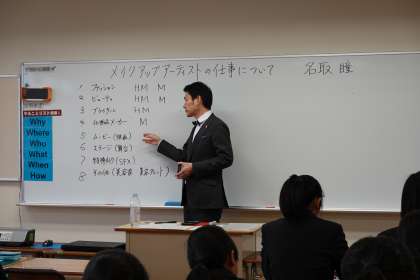 メイクアップアーティストの仕事について 名取 瞳
1 ファッション HM M
2 ビューティ HM M
3 ブライダル HM
4 化粧品メーカー M
5 ムービー(映画)
6 ステージ(舞台)
7 特殊メイク(SFX)
8 その他(美容家
Why
Where
Who
What
When
How